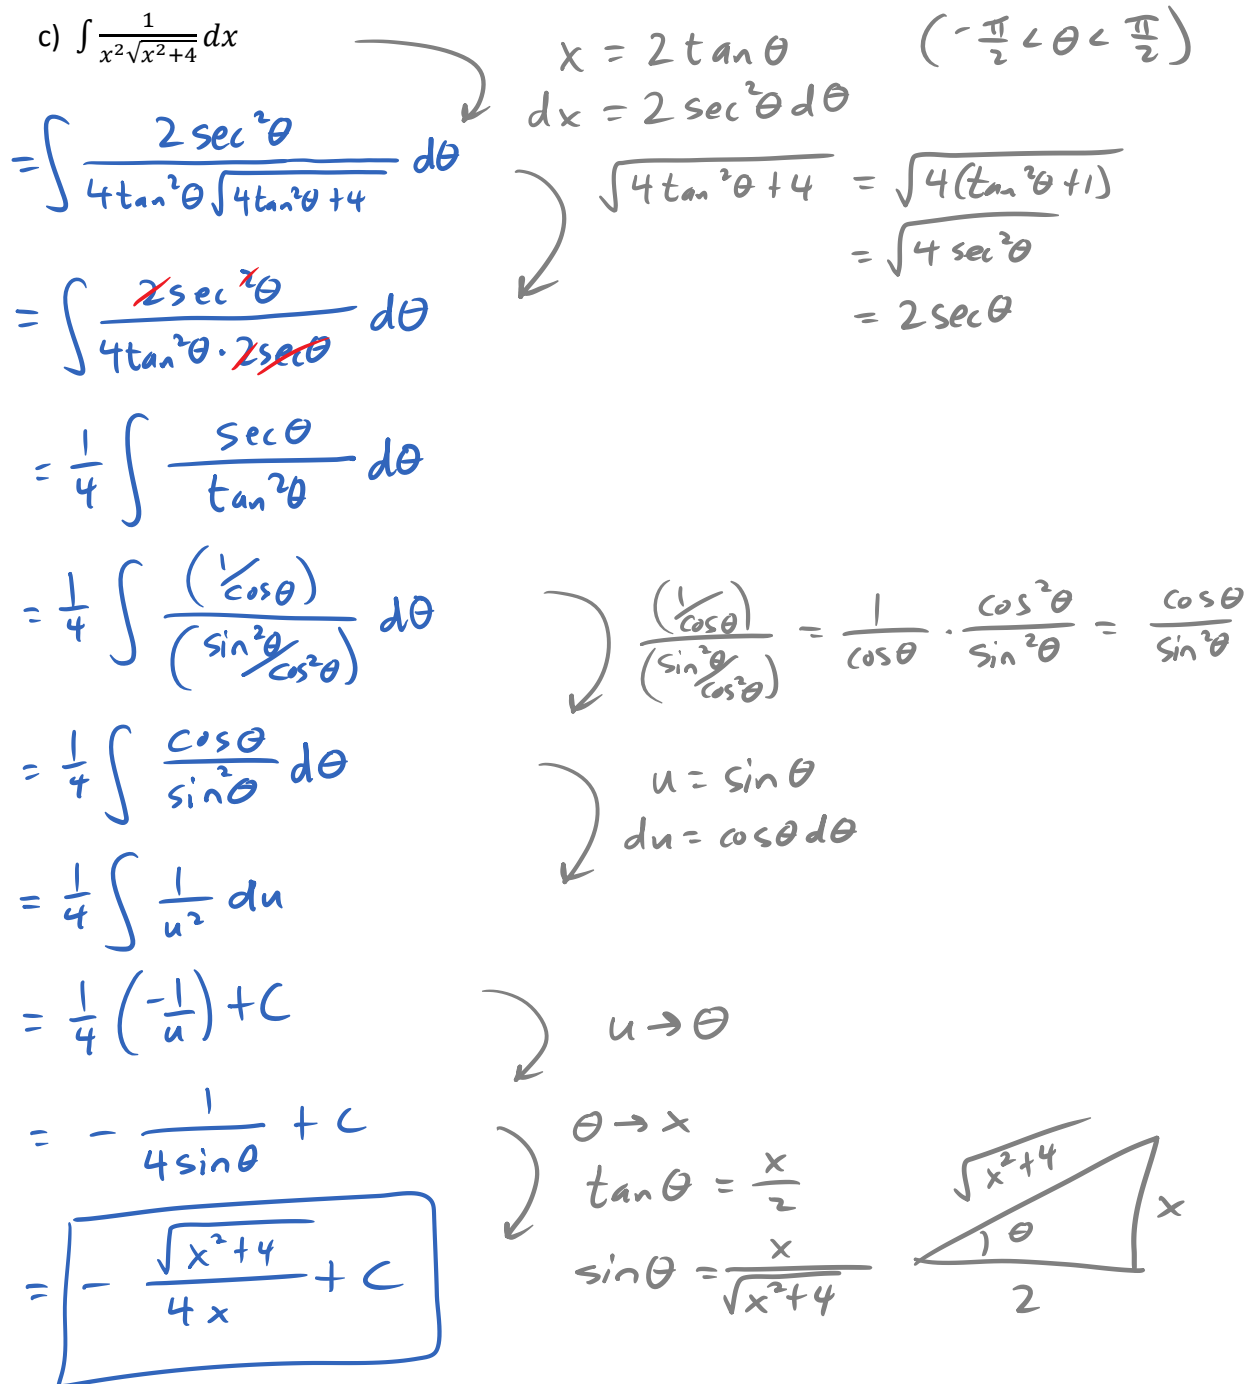 c) ∫ 1/(x²√(x²+4)) dx
x = 2 tan θ (-π/2 < θ < π/2)
dx = 2 sec²θ dθ
= ∫ 2 sec²θ / (4 tan²θ √(4 tan²θ + 4)) dθ
√(4 tan²θ + 4) = √(4(tan²θ + 1))
= √(4 sec²θ)
= 2 sec θ
= ∫ 2 sec²θ / (4 tan²θ · 2 sec θ) dθ
= 1/4 ∫ sec θ / tan²θ dθ
= 1/4 ∫ (1/cos θ) / (sin²θ/cos²θ) dθ
(1/cos θ) / (sin²θ/cos²θ) = 1/cos θ · cos²θ/sin²θ = cos θ/sin²θ
= 1/4 ∫ cos θ / sin²θ dθ
u = sin θ
du = cos θ dθ
= 1/4 ∫ 1/u² du
= 1/4 (-1/u) + C
u → θ
= - 1/(4 sin θ) + C
θ → x
tan θ = x/2
sin θ = x/√(x²+4)
√(x²+4)
θ
x
2
= - √(x²+4)/(4x) + C